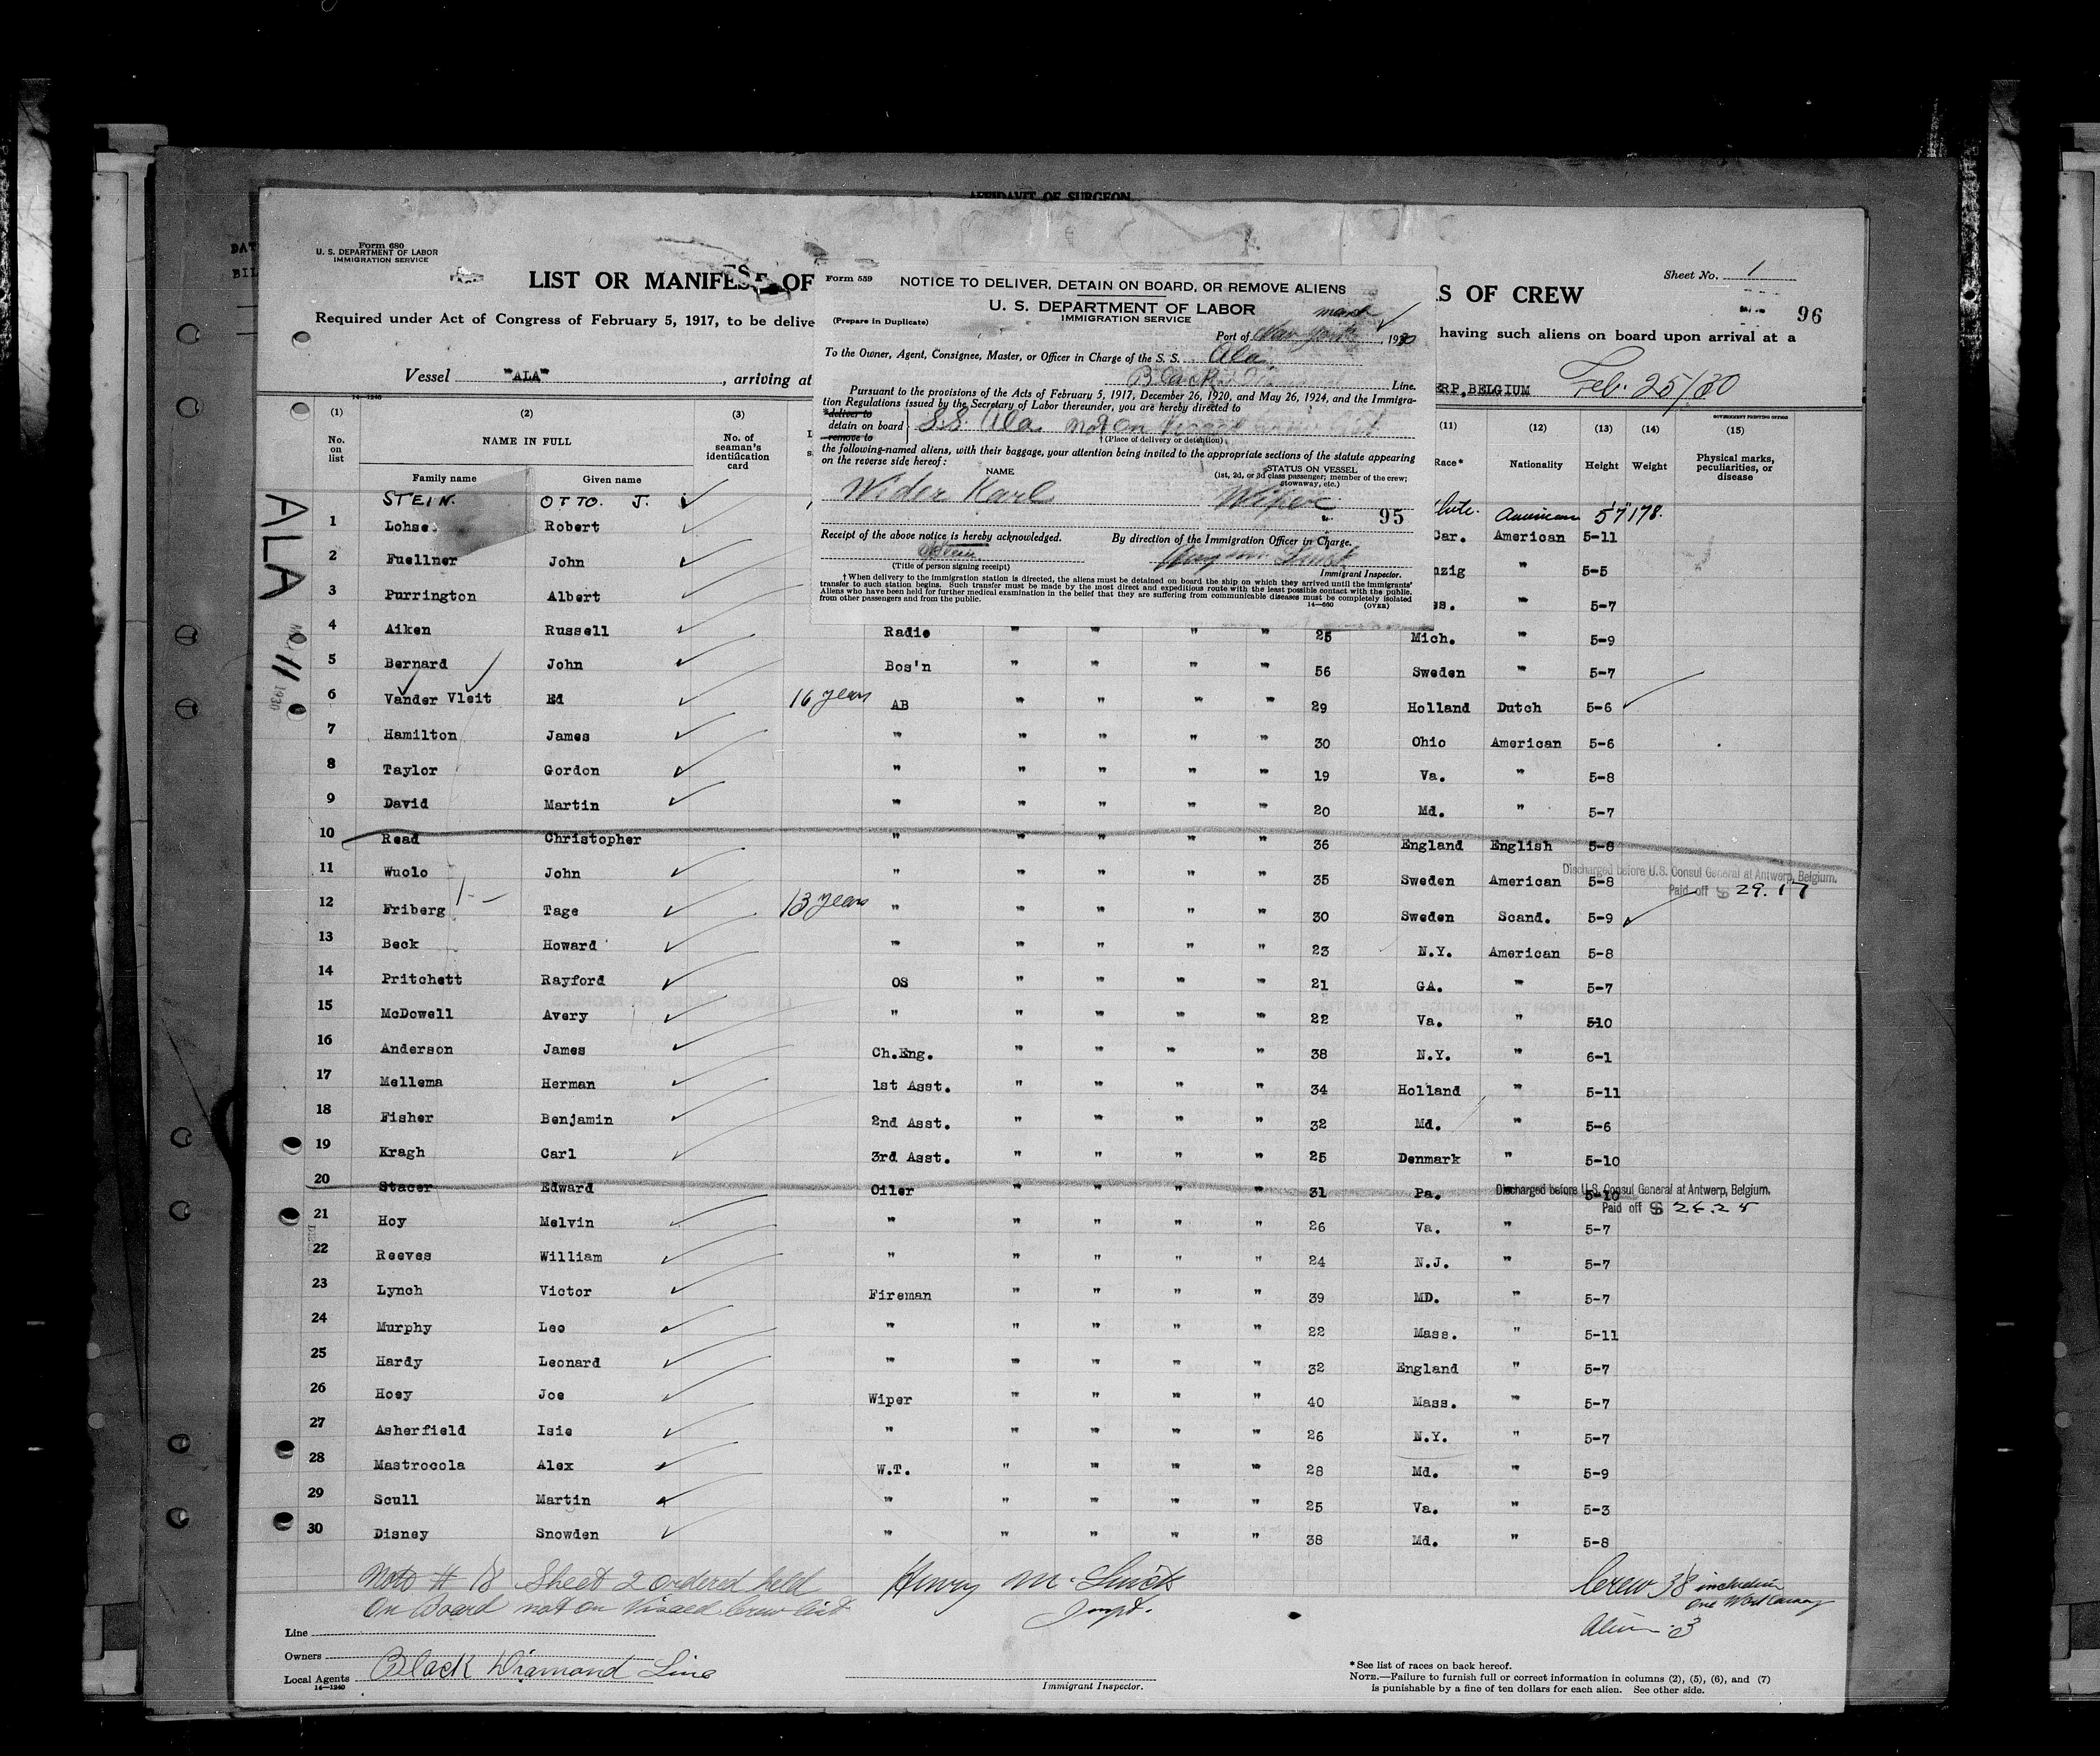 AFFIDAVIT OF SURGEON
Form 680
U. S. DEPARTMENT OF LABOR
IMMIGRATION SERVICE
Sheet No. 1
96
LIST OR MANIFEST OF
S OF CREW
Required under Act of Congress of February 5, 1917, to be delive
having such aliens on board upon arrival at a
Vessel "ALA", arriving at
ERP, BELGIUM Feb. 25/30
Form 559
NOTICE TO DELIVER, DETAIN ON BOARD, OR REMOVE ALIENS
U. S. DEPARTMENT OF LABOR
IMMIGRATION SERVICE
(Prepare in Duplicate)
Port of New York, 1930
To the Owner, Agent, Consignee, Master, or Officer in Charge of the S. S. Ala
Black Line.
Pursuant to the provisions of the Acts of February 5, 1917, December 26, 1920, and May 26, 1924, and the Immigra-
tion Regulations issued by the Secretary of Labor thereunder, you are hereby directed to
*deliver to
detain on board
remove to
S.S. Ala not on Visaed Crew List
† (Place of delivery or detention)
the following-named aliens, with their baggage, your attention being invited to the appropriate sections of the statute appearing
on the reverse side hereof:
NAME
STATUS ON VESSEL
(1st, 2d, or 3d class passenger; member of the crew;
stowaway, etc.)
Wider Karl Wiper
95
Receipt of the above notice is hereby acknowledged.
By direction of the Immigration Officer in Charge.
(Title of person signing receipt)
Immigrant Inspector.
† When delivery to the immigration station is directed, the aliens must be detained on board the ship on which they arrived until the immigrants'
transfer to such station begins. Such transfer must be made by the most direct and expeditious route with the least possible contact with the public.
Aliens who have been held for further medical examination in the belief that they are suffering from communicable diseases must be completely isolated
from other passengers and from the public.
14—660 (OVER)
14—1240
GOVERNMENT PRINTING OFFICE
(1) (2) (3) (11) (12) (13) (14) (15)
No. on list
NAME IN FULL
Family name Given name
No. of seaman's identification card
Race* Nationality Height Weight
Physical marks, peculiarities, or disease
ALA
1930
STEIN. OTTO. J. American 5'7 178.
1 Lohse Robert Car. American 5-11
2 Fuellner John nzig " 5-5
3 Purrington Albert s. " 5-7
4 Aiken Russell Radio " " " " 25 Mich. " 5-9
5 Bernard John Bos'n " " " " 56 Sweden " 5-7
6 Vander Vleit Ed 16 years AB " " " " 29 Holland Dutch 5-6
7 Hamilton James " " " " " 30 Ohio American 5-6
8 Taylor Gordon " " " " " 19 Va. " 5-8
9 David Martin " " " " " 20 Md. " 5-7
10 Read Christopher " " " " " 36 England English 5-8
Discharged before U.S. Consul General at Antwerp, Belgium.
Paid off $ 29.17
11 Wuolo John " " " " " 35 Sweden American 5-8
12 Friberg Tage 13 years " " " " " 30 Sweden Scand. 5-9
13 Beck Howard " " " " " 23 N.Y. American 5-8
14 Pritchett Rayford OS " " " " 21 GA. " 5-7
15 McDowell Avery " " " " " 22 Va. " 5-10
16 Anderson James Ch.Eng. " " " " 38 N.Y. " 6-1
17 Mellema Herman 1st Asst. " " " " 34 Holland " 5-11
18 Fisher Benjamin 2nd Asst. " " " " 32 Md. " 5-6
19 Kragh Carl 3rd Asst. " " " " 25 Denmark " 5-10
20 Stacer Edward Oiler " " " " 31 Pa. 5-10
Discharged before U.S. Consul General at Antwerp, Belgium.
Paid off $
21 Hoy Melvin " " " " " 26 Va. " 5-7
22 Reeves William " " " " " 24 N.J. " 5-7
23 Lynch Victor Fireman " " " " 39 MD. " 5-7
24 Murphy Leo " " " " " 22 Mass. " 5-11
25 Hardy Leonard " " " " " 32 England " 5-7
26 Hoey Joe Wiper " " " " 40 Mass. " 5-7
27 Asherfield Isie " " " " " 26 N.Y. " 5-7
28 Mastrocola Alex W.T. " " " " 28 Md. " 5-9
29 Scull Martin " " " " " 25 Va. " 5-3
30 Disney Snowden " " " " " 38 Md. " 5-8
Note # 18 Sheet 2 ordered held
On Board not on Visaed Crew List
Henry M.
Inspt.
Crew 38 including
One Workaway
Aliens 3
Line
Owners
Local Agents Black Diamond Line
14—1240
Immigrant Inspector.
* See list of races on back hereof.
NOTE.—Failure to furnish full or correct information in columns (2), (5), (6), and (7)
is punishable by a fine of ten dollars for each alien. See other side.